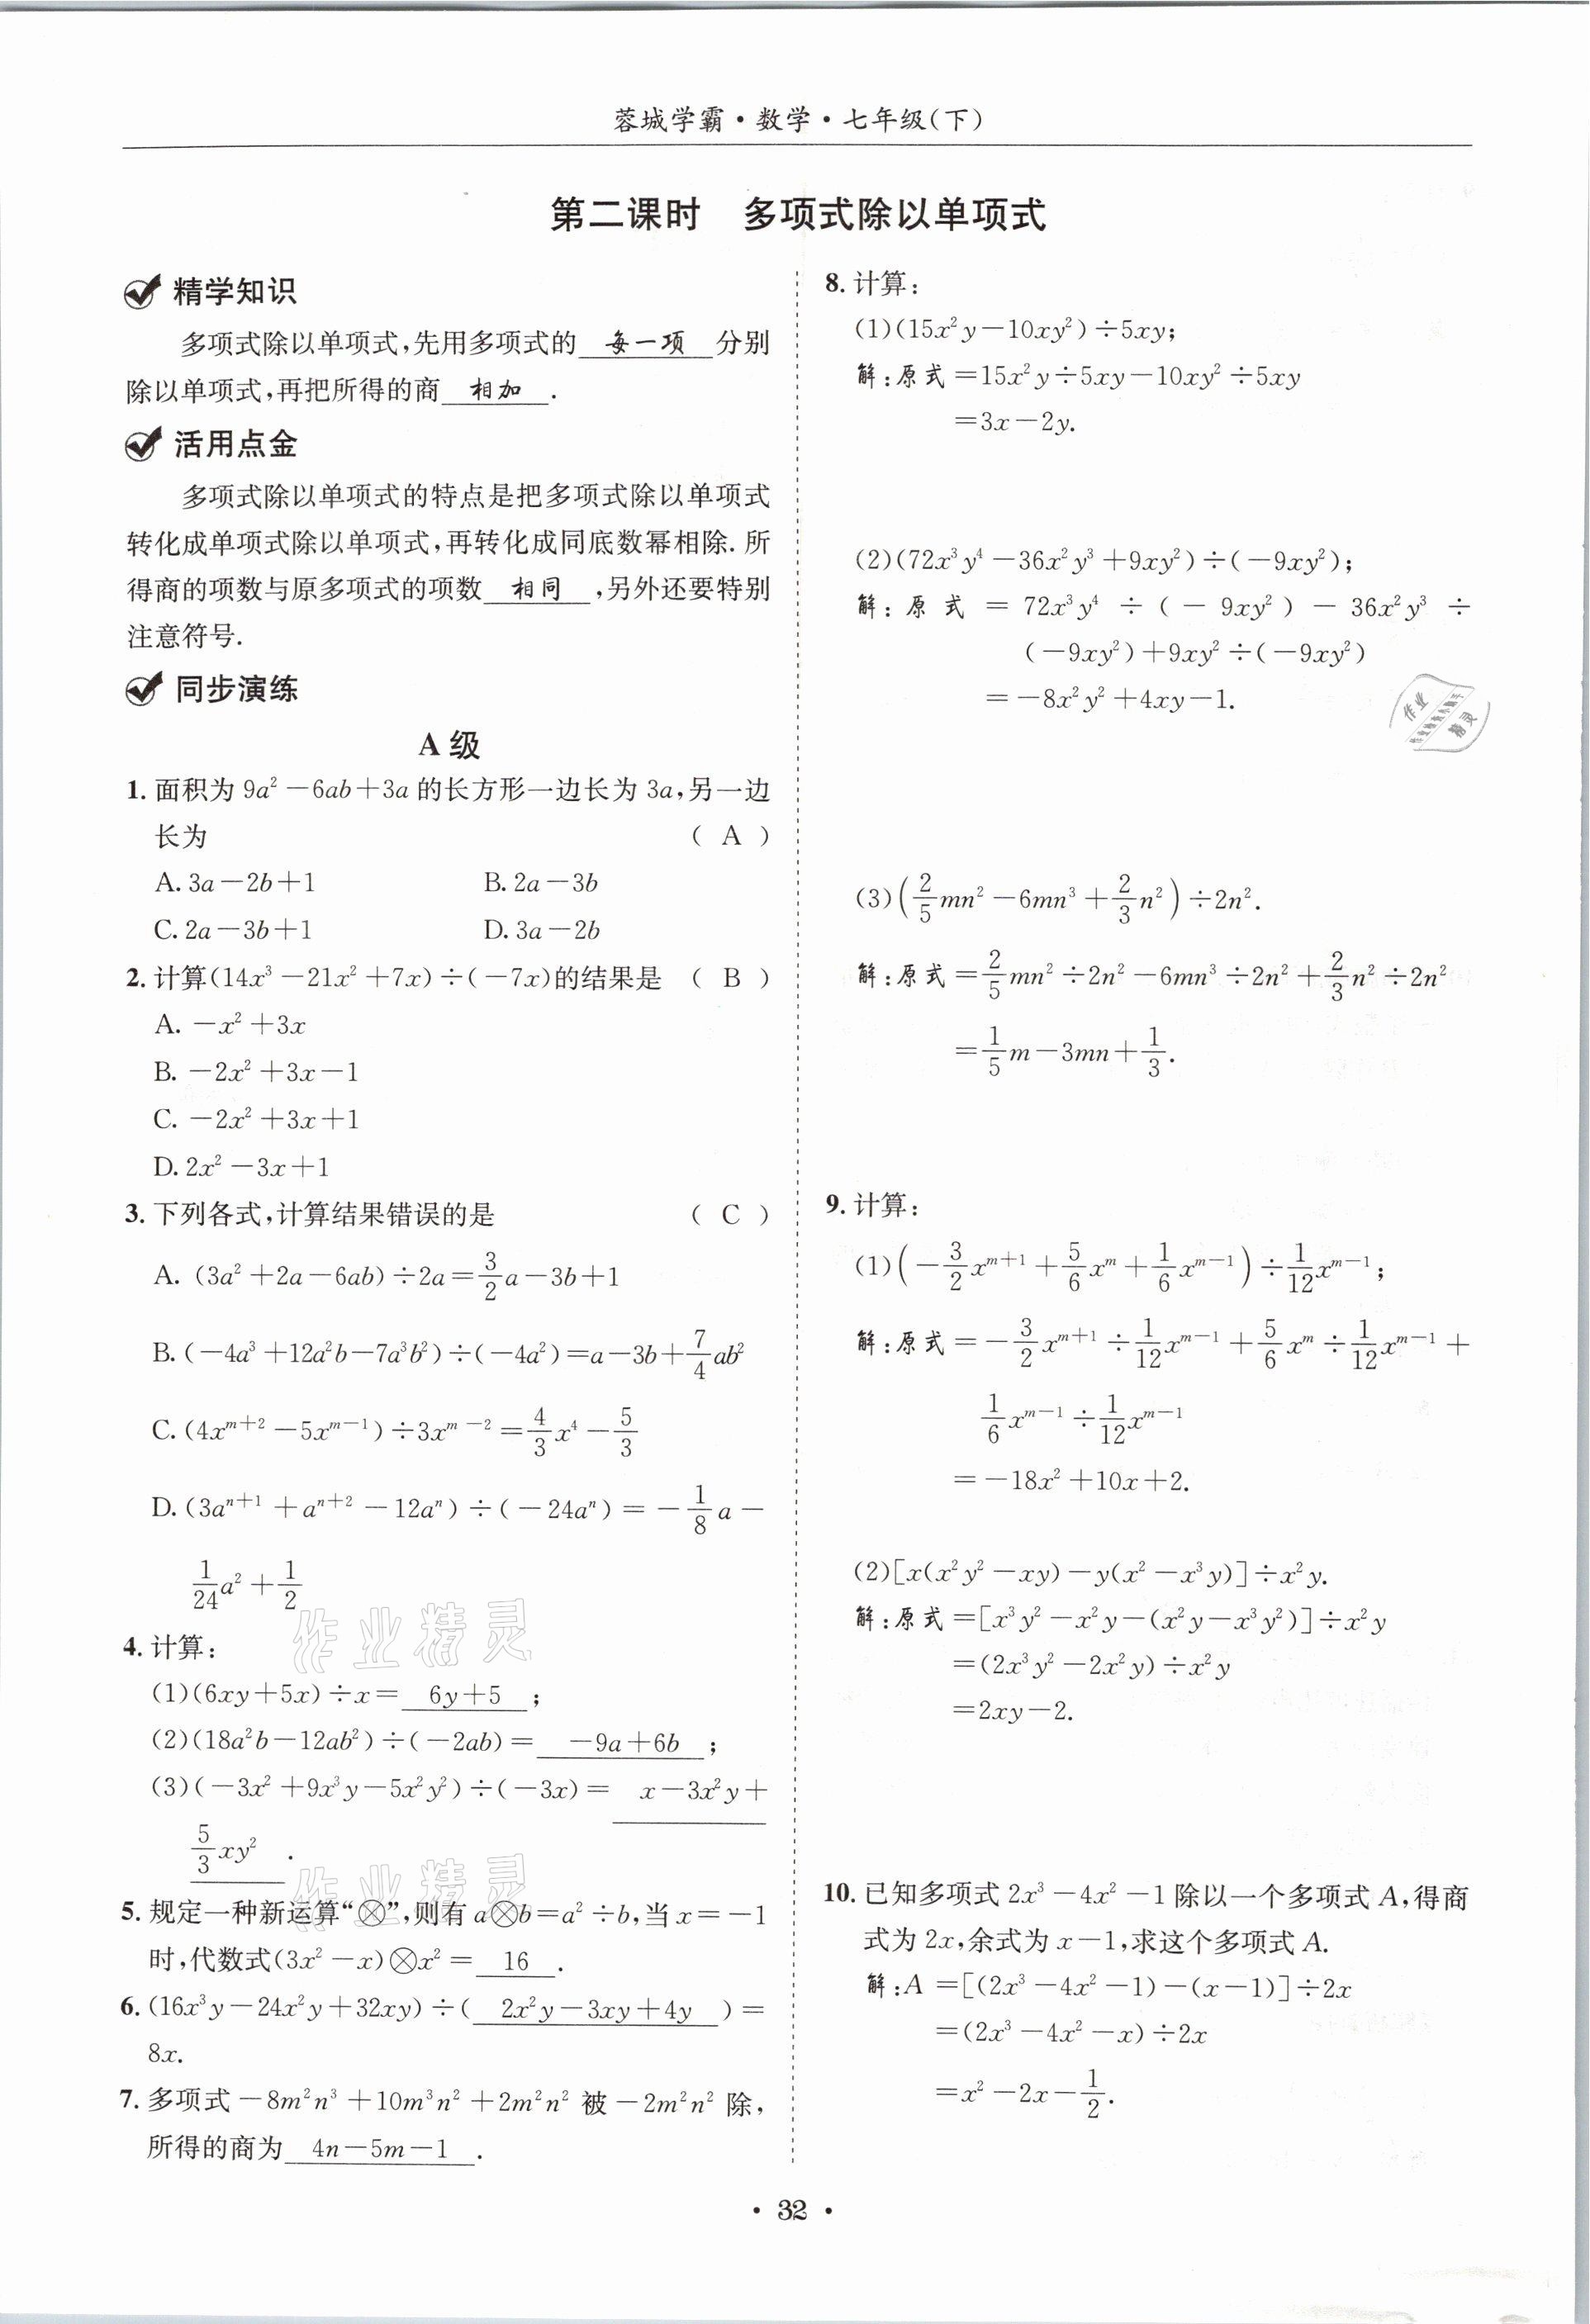 蓉城学霸·数学·七年级(下)
第二课时 多项式除以单项式
精学知识
多项式除以单项式,先用多项式的 每一项 分别
除以单项式,再把所得的商 相加 .
活用点金
多项式除以单项式的特点是把多项式除以单项式
转化成单项式除以单项式,再转化成同底数幂相除. 所
得商的项数与原多项式的项数 相同 ,另外还要特别
注意符号.
同步演练
A 级
1. 面积为 9a²-6ab+3a 的长方形一边长为 3a,另一边
长为 ( A )
A. 3a-2b+1 B. 2a-3b
C. 2a-3b+1 D. 3a-2b
2. 计算(14x³-21x²+7x)÷(-7x)的结果是 ( B )
A. -x²+3x
B. -2x²+3x-1
C. -2x²+3x+1
D. 2x²-3x+1
3. 下列各式,计算结果错误的是 ( C )
A. (3a²+2a-6ab)÷2a=3/2a-3b+1
B. (-4a³+12a²b-7a³b²)÷(-4a²)=a-3b+7/4ab²
C. (4xᵐ⁺²-5xᵐ⁻¹)÷3xᵐ⁻²=4/3x⁴-5/3
D. (3aⁿ⁺¹+aⁿ⁺²-12aⁿ)÷(-24aⁿ)=-1/8a-
1/24a²+1/2
4. 计算:
(1)(6xy+5x)÷x= 6y+5 ;
(2)(18a²b-12ab²)÷(-2ab)= -9a+6b ;
(3)(-3x²+9x³y-5x²y²)÷(-3x)= x-3x²y+
5/3xy² .
5. 规定一种新运算“⊗”,则有 a⊗b=a²÷b,当 x=-1
时,代数式(3x²-x)⊗x²= 16 .
6. (16x³y-24x²y+32xy)÷( 2x²y-3xy+4y )=
8x.
7. 多项式-8m²n³+10m³n²+2m²n² 被-2m²n² 除,
所得的商为 4n-5m-1 .
8. 计算:
(1)(15x²y-10xy²)÷5xy;
解:原式=15x²y÷5xy-10xy²÷5xy
=3x-2y.
(2)(72x³y⁴-36x²y³+9xy²)÷(-9xy²);
解:原式=72x³y⁴÷(-9xy²)-36x²y³÷
(-9xy²)+9xy²÷(-9xy²)
=-8x²y²+4xy-1.
(3)(2/5mn²-6mn³+2/3n²)÷2n².
解:原式=2/5mn²÷2n²-6mn³÷2n²+2/3n²÷2n²
=1/5m-3mn+1/3.
9. 计算:
(1)(-3/2xᵐ⁺¹+5/6xᵐ+1/6xᵐ⁻¹)÷1/12xᵐ⁻¹;
解:原式=-3/2xᵐ⁺¹÷1/12xᵐ⁻¹+5/6xᵐ÷1/12xᵐ⁻¹+
1/6xᵐ⁻¹÷1/12xᵐ⁻¹
=-18x²+10x+2.
(2)[x(x²y²-xy)-y(x²-x³y)]÷x²y.
解:原式=[x³y²-x²y-(x²y-x³y²)]÷x²y
=(2x³y²-2x²y)÷x²y
=2xy-2.
10. 已知多项式 2x³-4x²-1 除以一个多项式 A,得商
式为 2x,余式为 x-1,求这个多项式 A.
解:A=[(2x³-4x²-1)-(x-1)]÷2x
=(2x³-4x²-x)÷2x
=x²-2x-1/2.
作业精灵
作业精灵
作业
精灵
· 32 ·